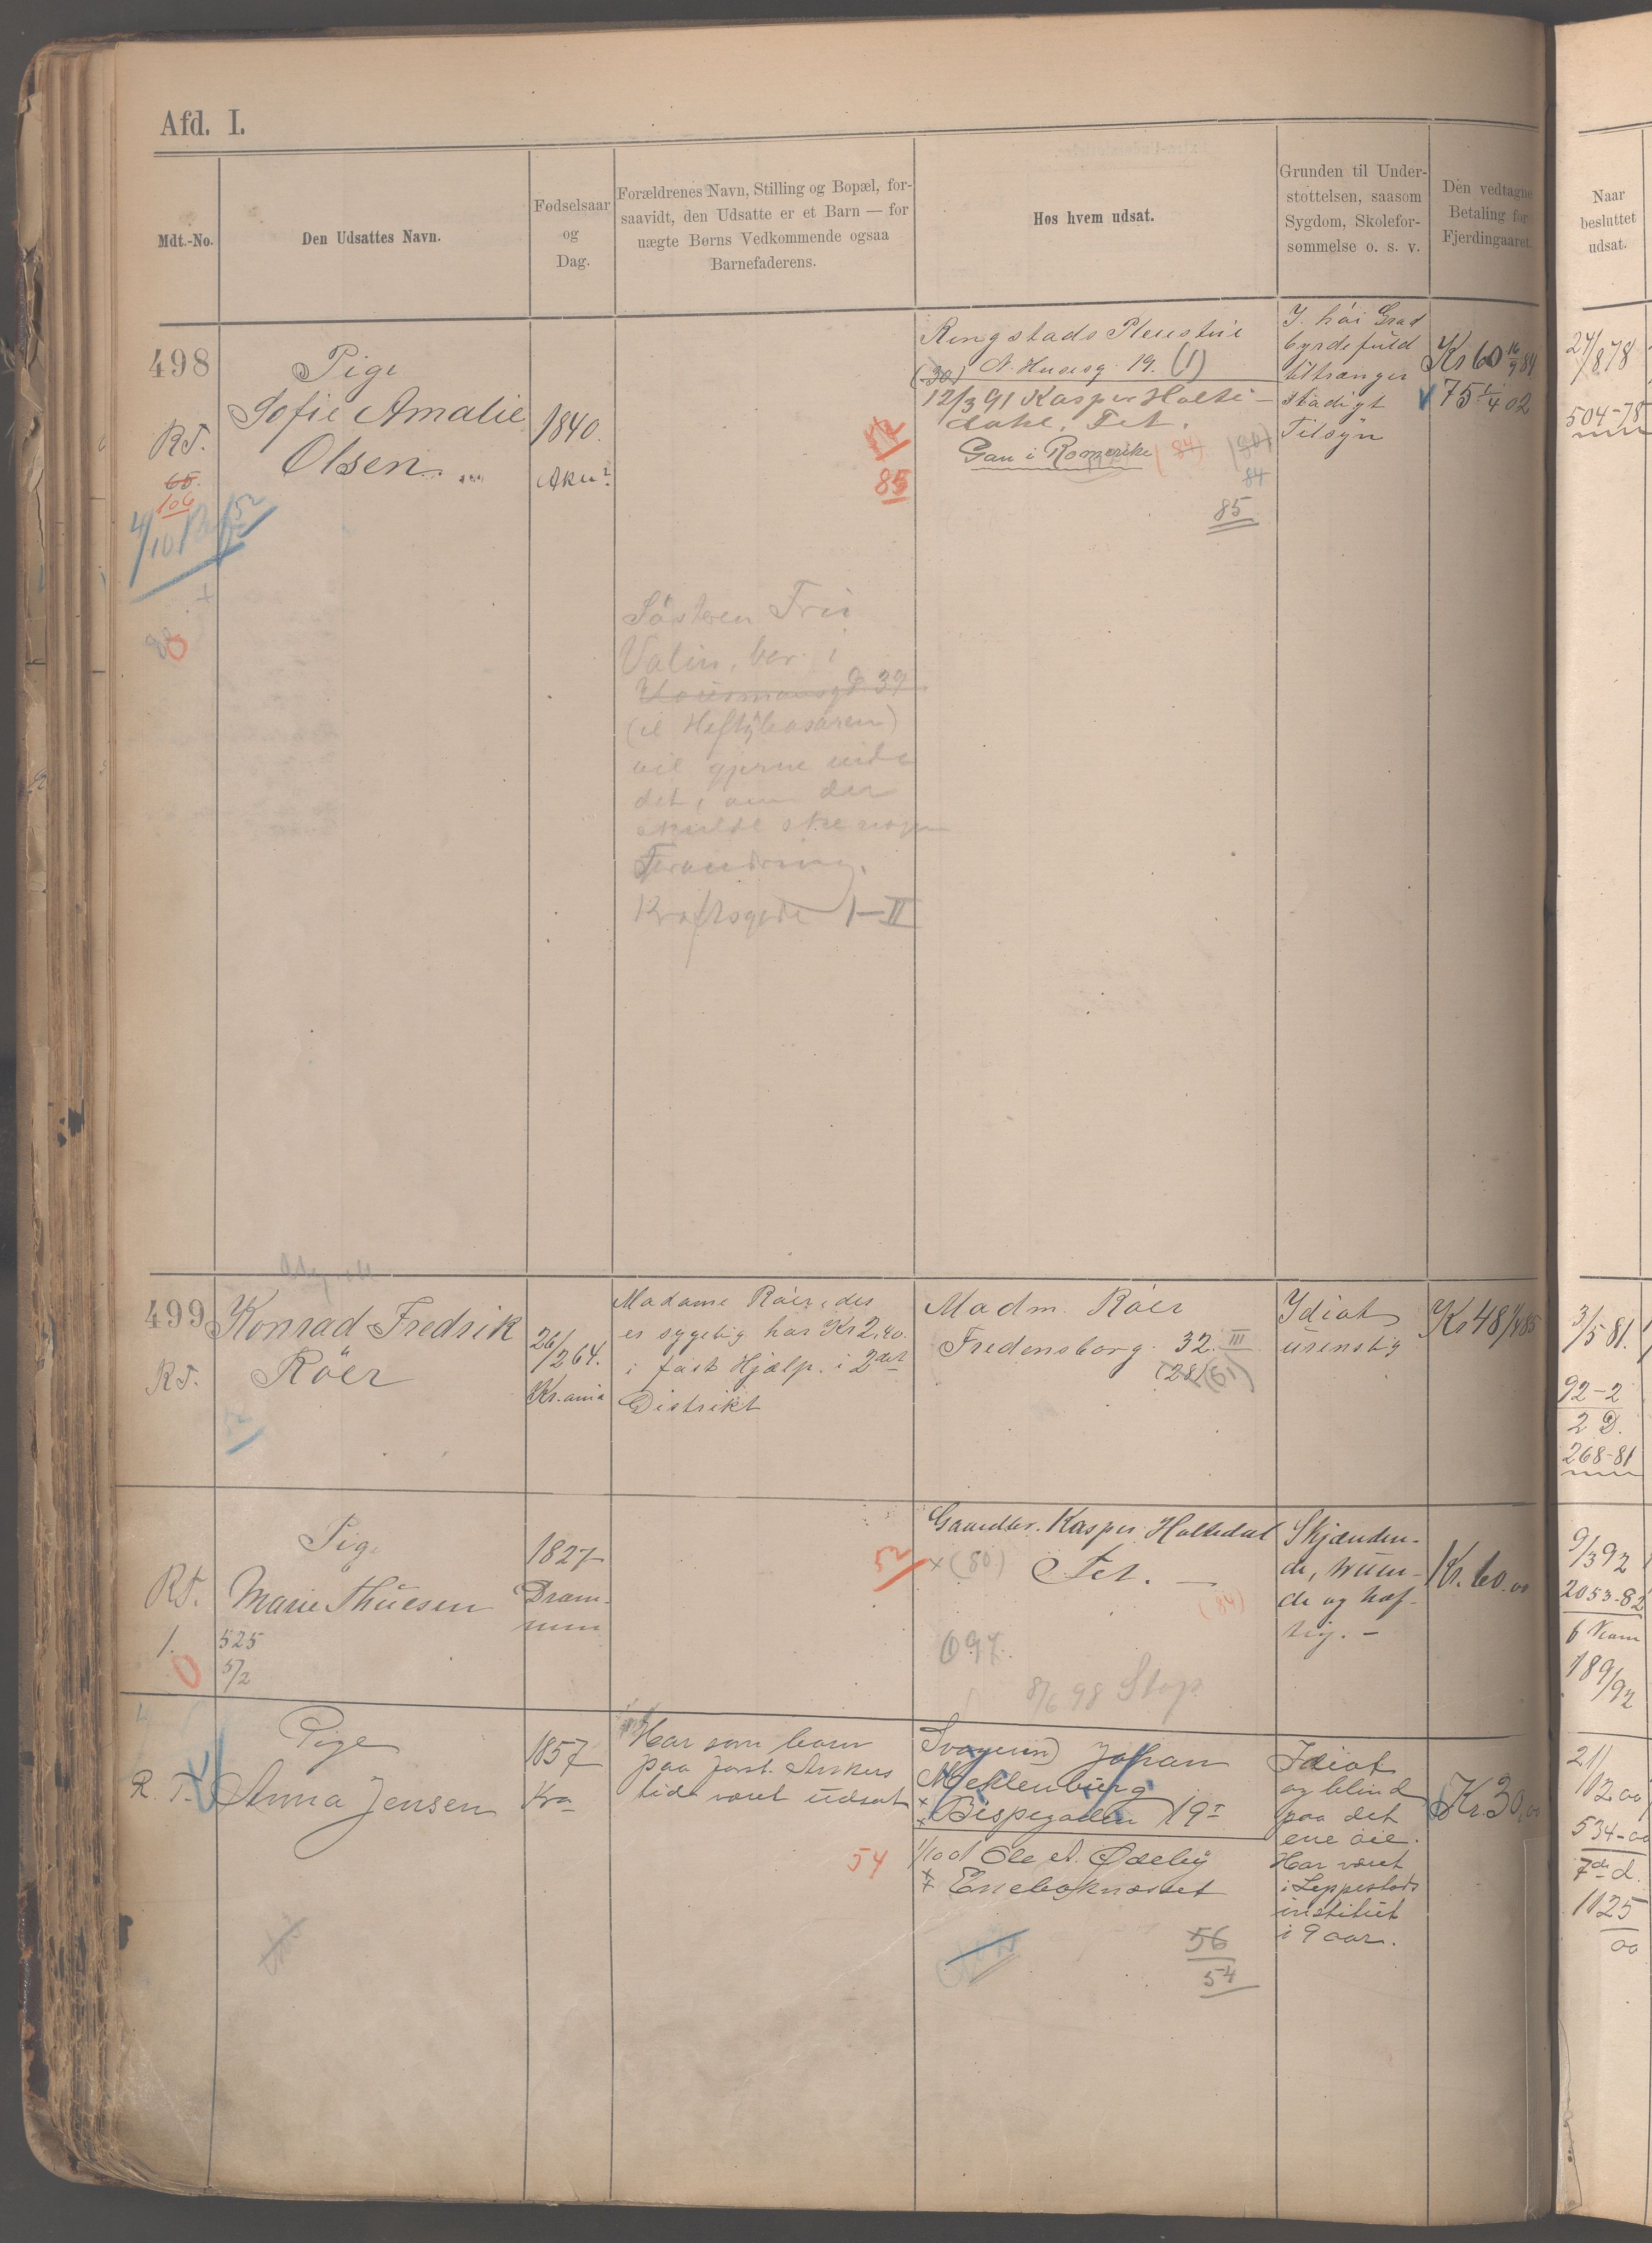 Afd. I.
Mdt.-No.
Den Udsattes Navn.
Fødselsaar
og
Dag.
Forældrenes Navn, Stilling og Bopæl, for-
saavidt, den Udsatte er et Barn — for
uægte Børns Vedkommende ogsaa
Barnefaderens.
Hos hvem udsat.
Grunden til Under-
støttelsen, saasom
Sygdom, Skolefor-
sømmelse o. s. v.
Den vedtagne
Betaling for
Fjerdingaaret.
Naar
besluttet
udsat.
498
RT.
65.
106
Pige
Sofie Amalie
Olsen
1840.
Aker
Ringstads Pleiestue
N. Husesg. 19. (1)
(30)
12/3 91 Kasper Holte-
dahl, Fet.
Gan i Romerike (84)
84
85
52
85
I høi Grad
byrdefuld
tiltrænger
stadigt
Tilsyn
Kr 60 16/9 84
75 1/4 02
24/8 78
504-78
Søsteren Fru
Valin, bor i
37
vil gjerne vide
det, om der
skulde ske nogen
Forandring.
Kraftsgade 1-II
499
RT.
Konrad Fredrik
Röer
26/2 64.
Kr.ania
Madame Röer, der
er sygelig har Kr 2,40.
i fast Hjælp i 2det
Distrikt
Madm. Röer
Fredensborg. 32. III
(28) (61)
Idiot
urenslig
Kr 48 1/4 85
3/5 81.
92-2
2 D.
268-81
RT.
1.
Pige
Marie Thuesen
525
5/2
1827
Dram-
men
52
Gaardbr. Kasper Holtedal
x (80) Fet.
(84)
097.
8/6 98 Stop
Skjænden-
de, truen-
de og hef-
tig. -
Kr. 60.00
9/3 92
2053-82
6 Kom
189/92
R. T.
Pige
Anna Jensen
1857
Kra
Har som barn
paa forst. Ankers
tid været udsat
54
Svogeren) Johan
Meklenburg
Bispegaden 19 I
1/10 01 Ole A. Ødeby
Enebaknesset
56
54
Idiot
og blind
paa det
ene øie.
Har været
i Lippestads
institut
i 9 aar.
Kr. 30,00
2/1
102 00
534-00
7de d.
1125
00